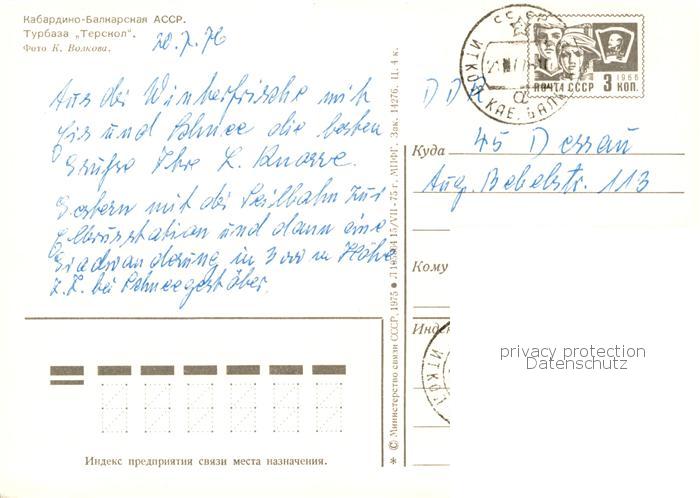 Кабардино-Балкарская АССР.
Турбаза „Терскол".
Фото К. Волкова.
20.7.76
Aus der Winterfrische mit
Eis und Schnee die besten
Grüße Ihre L. Knorre.
Gestern mit der Seilbahn zur
Elbrusstation und dann eine
in 3000 m Höhe
z.Z. bei Schneegestöber.
Индекс предприятия связи места назначения.
* © Министерство связи СССР, 1975 ● 15/VII-75 г. МПФГ. Зак. 14276. Ц. 4 к.
СССР
ИТКОЛ КАБ. БАЛК
ПОЧТА СССР 3 КОП.
1966
DDR
Куда 45 Dessau
Aug. Bebelstr. 113
Кому
Индекс
ИТКОЛ
privacy protection
Datenschutz